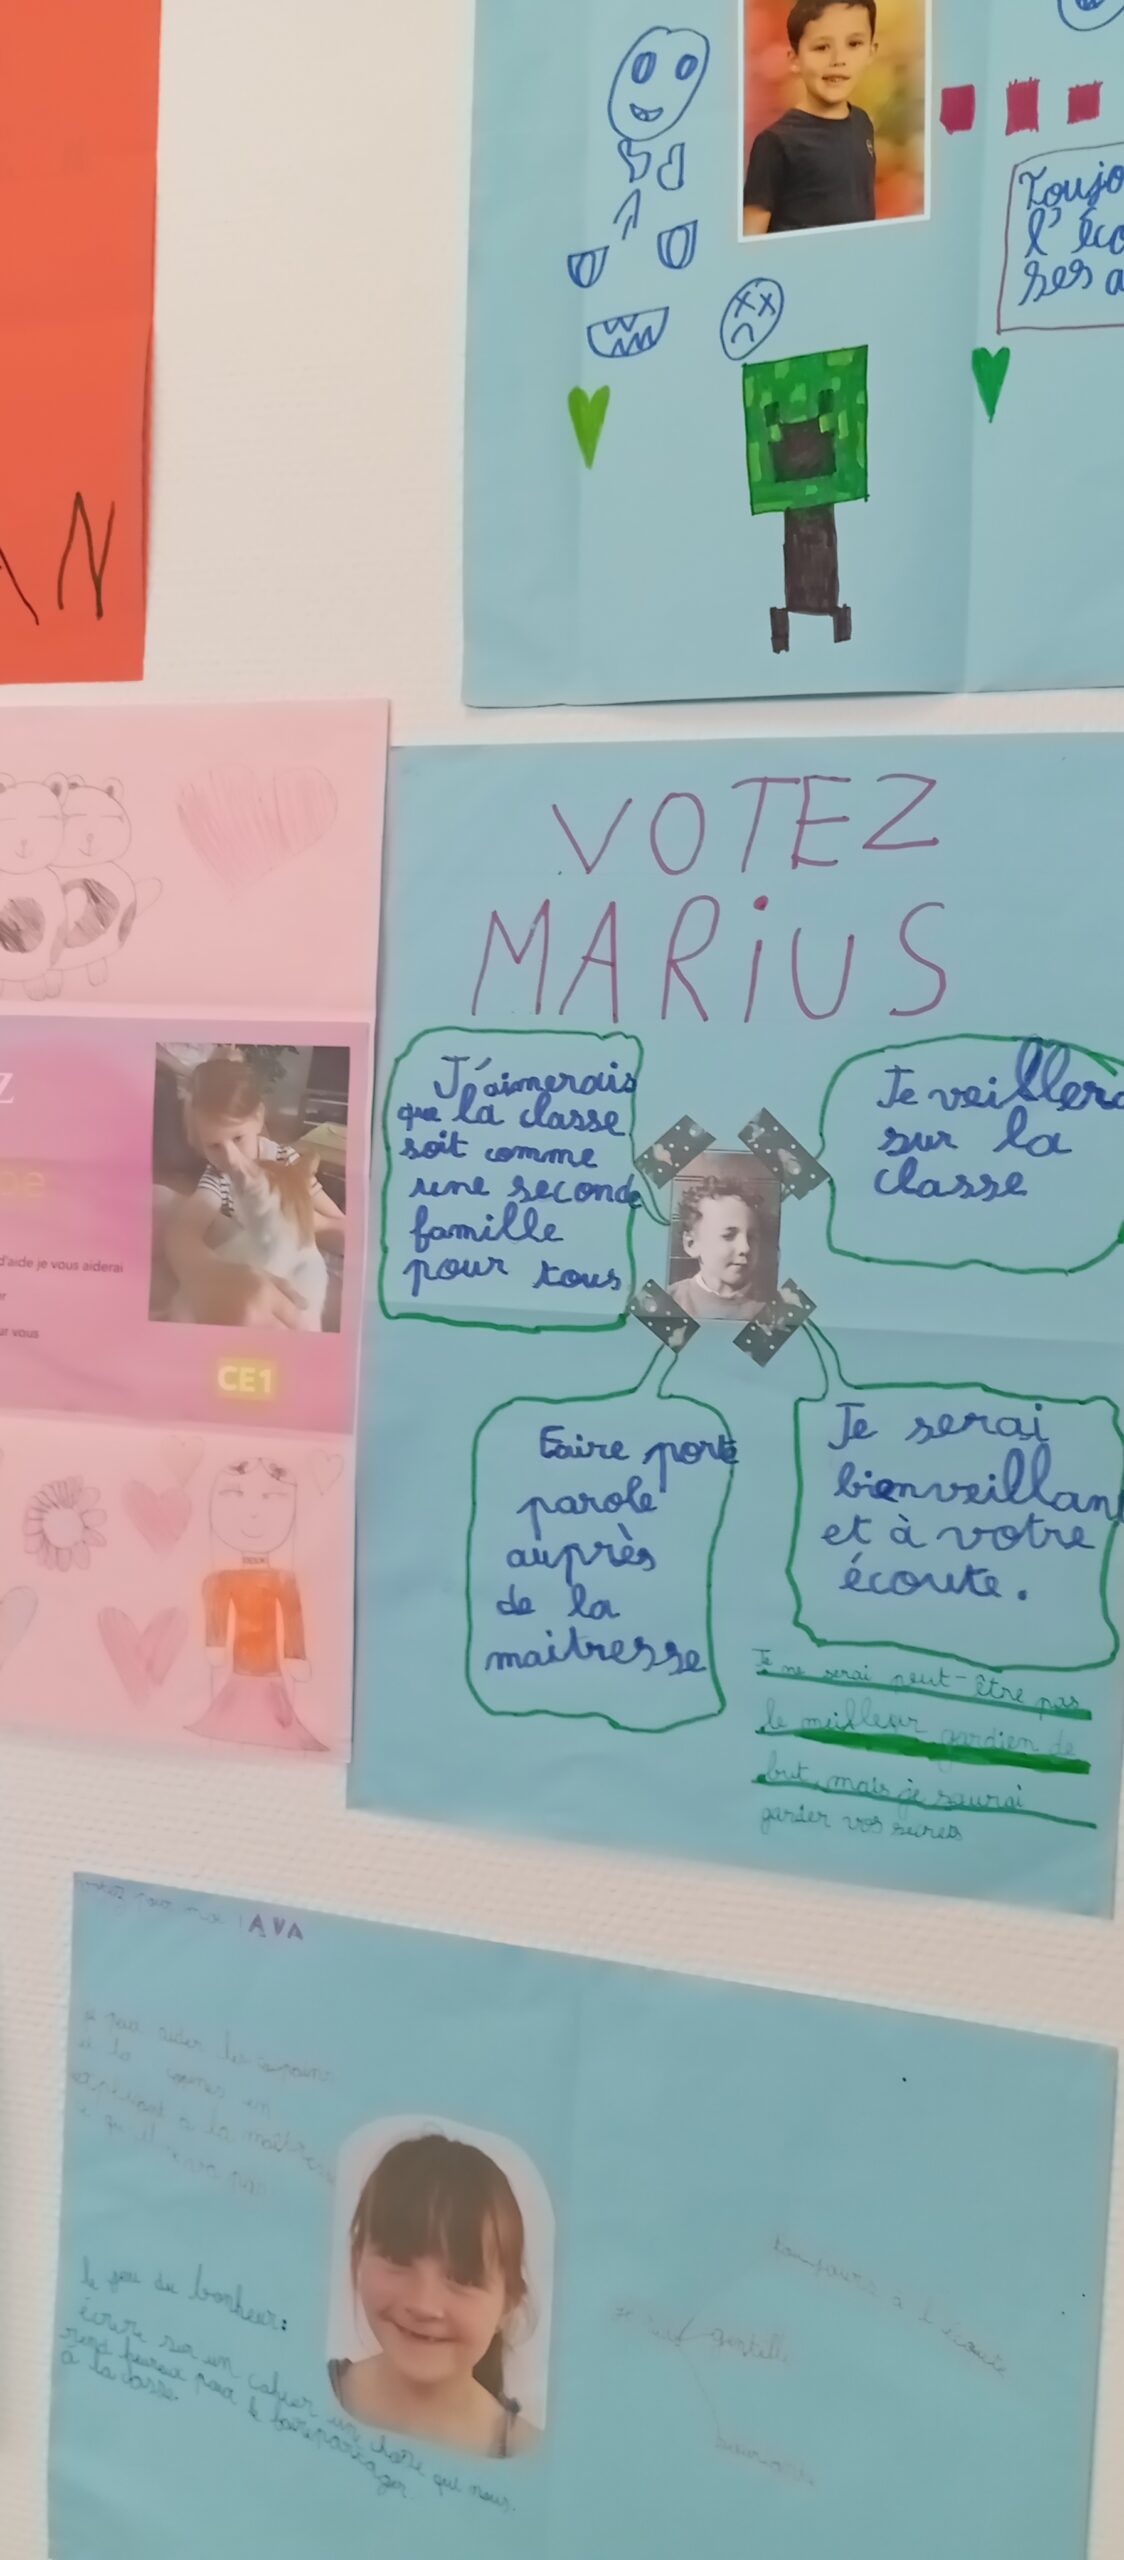 AN
Toujo
l'éco
ses a
VOTEZ
MARiUS
J'aimerais
que la classe
soit comme
une seconde
famille
pour tous
Je veillera
sur la
classe
Faire porte
parole
auprès
de la
maitresse
Je serai
bienveillan
et à votre
écoute.
Je ne serai peut-être pas
le meilleur gardien de
but, mais je saurai
garder vos secrets
Z
d'aide je vous aiderai
r
ur vous
CE1
votez pour moi AVA
je peux aider les copains
et la
expliquant à la maîtresse
ce qui ne va pas
le jeu du bonheur:
écrire sur un cahier une chose qui nous
rend heureux pour le faire partager
à la classe.
toujours à l'écoute
je suis gentille
souriante